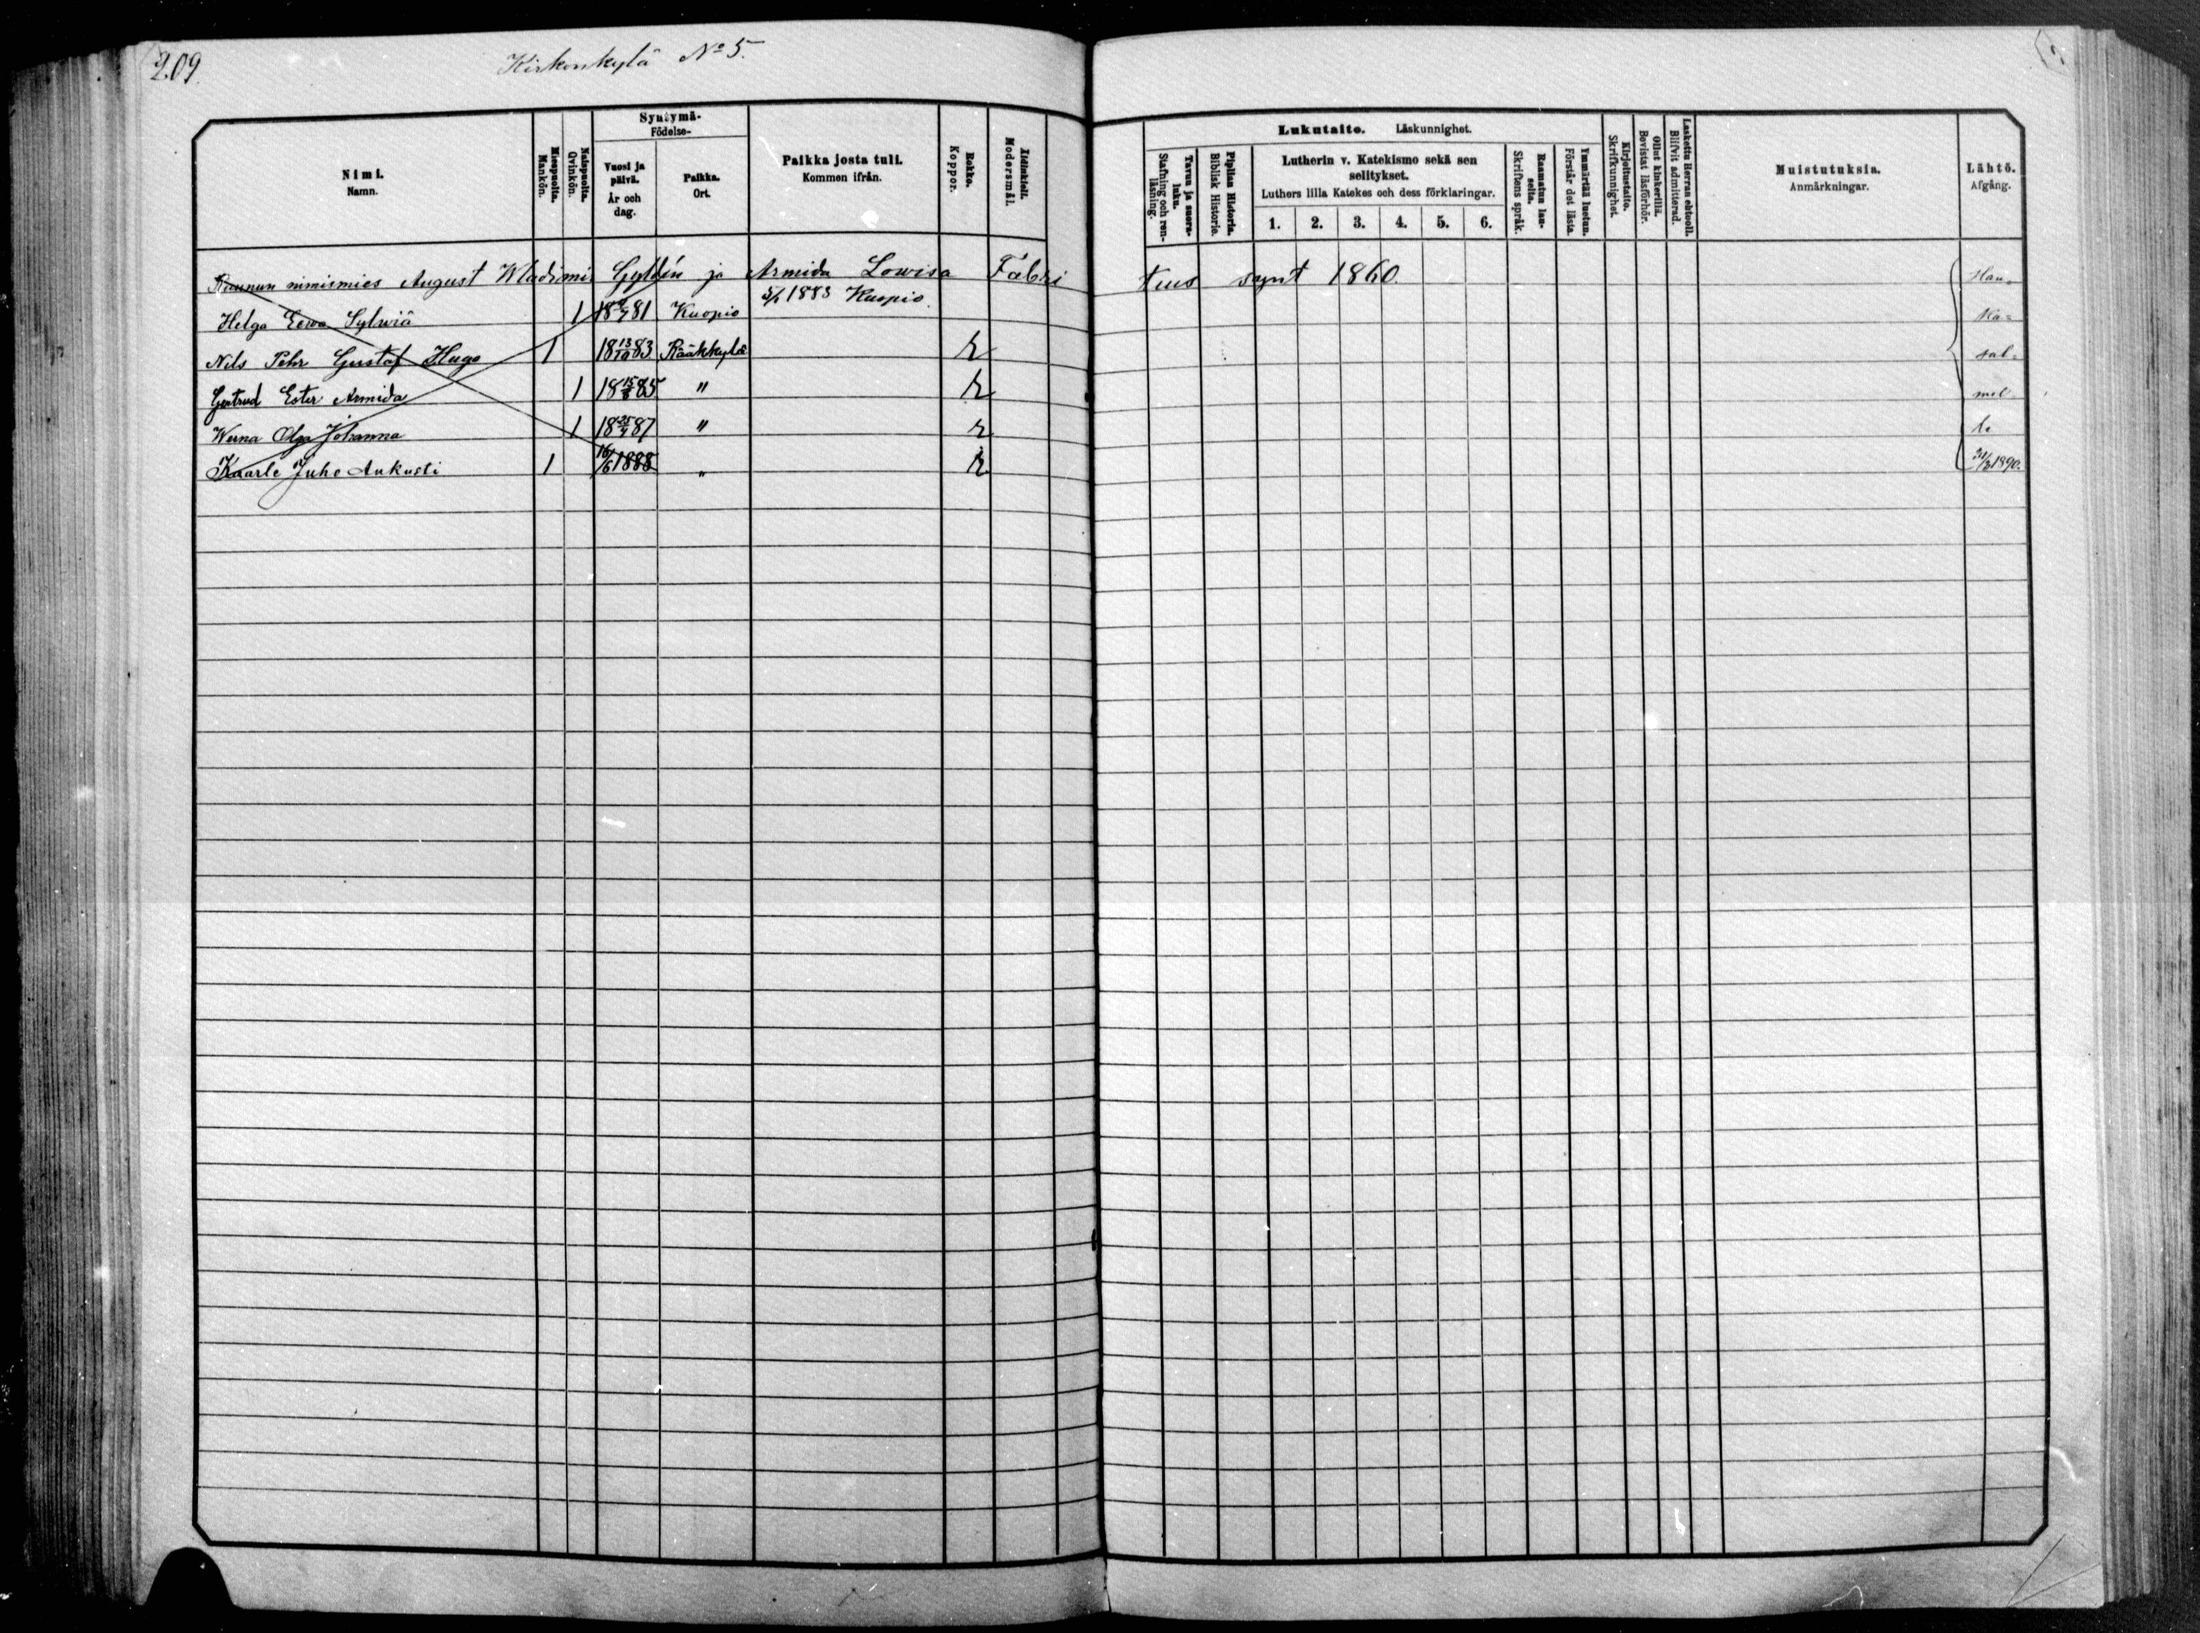 209.
Kirkonkylä No 5.
Nimi.
Namn.
Miespuolta.
Mankön.
Naispuolta.
Qvinkön.
Syntymä-
Födelse-
Vuosi ja päivä.
År och dag.
Paikka.
Ort.
Paikka josta tuli.
Kommen ifrån.
Rokko.
Koppor.
Äidinkieli.
Modersmål.
Lukutaito. Läskunnighet.
Tavuu ja suora-luku.
Stafning och ren-läsning.
Piplian Historia.
Biblisk Historie.
Lutherin v. Katekismo sekä sen
selitykset.
Luthers lilla Katekes och dess förklaringar.
1. 2. 3. 4. 5. 6.
Raamatun lau-seita.
Skriftens språk.
Ymmärtää luetun.
Förstår det lästa.
Kirjoitustaito.
Skrifkunnighet.
Ollut kinkerillä.
Bevistat läsförhör.
Laskettu Herran ehtooll.
Blifvit admitterad.
Muistutuksia.
Anmärkningar.
Lähtö.
Afgång.
Ruunun nimismies August Wladimir Gyldén ja Armida Lowisa Fabri tius synt 1860. Hau-
Helga Eewa Sylwiä 1 18 81 Kuopio 5/1 1883 Kuopio. ka-
Nils Pehr Gustaf Hugo 1 18 13/10 83 Rääkkylä r sal-
Gertrud Ester Armida 1 18 15/8 85 " r mel-
Werna Olga Johanna 1 18 87 " r le
Kaarle Juho Aukusti 1 16/6 1888 " r 1890.